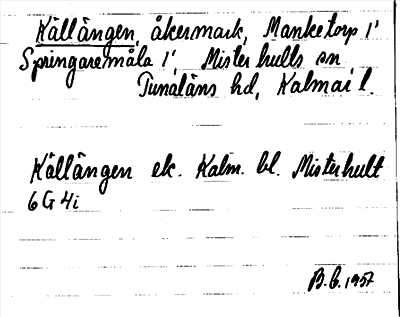 Källängen, åkermark, Manketorp 1'
Springaremåla 1', Misterhults sn
Tunaläns hd, Kalmar l.
Källängen ek. Kalm. bl. Misterhult
6G 4i
B.G. 1957